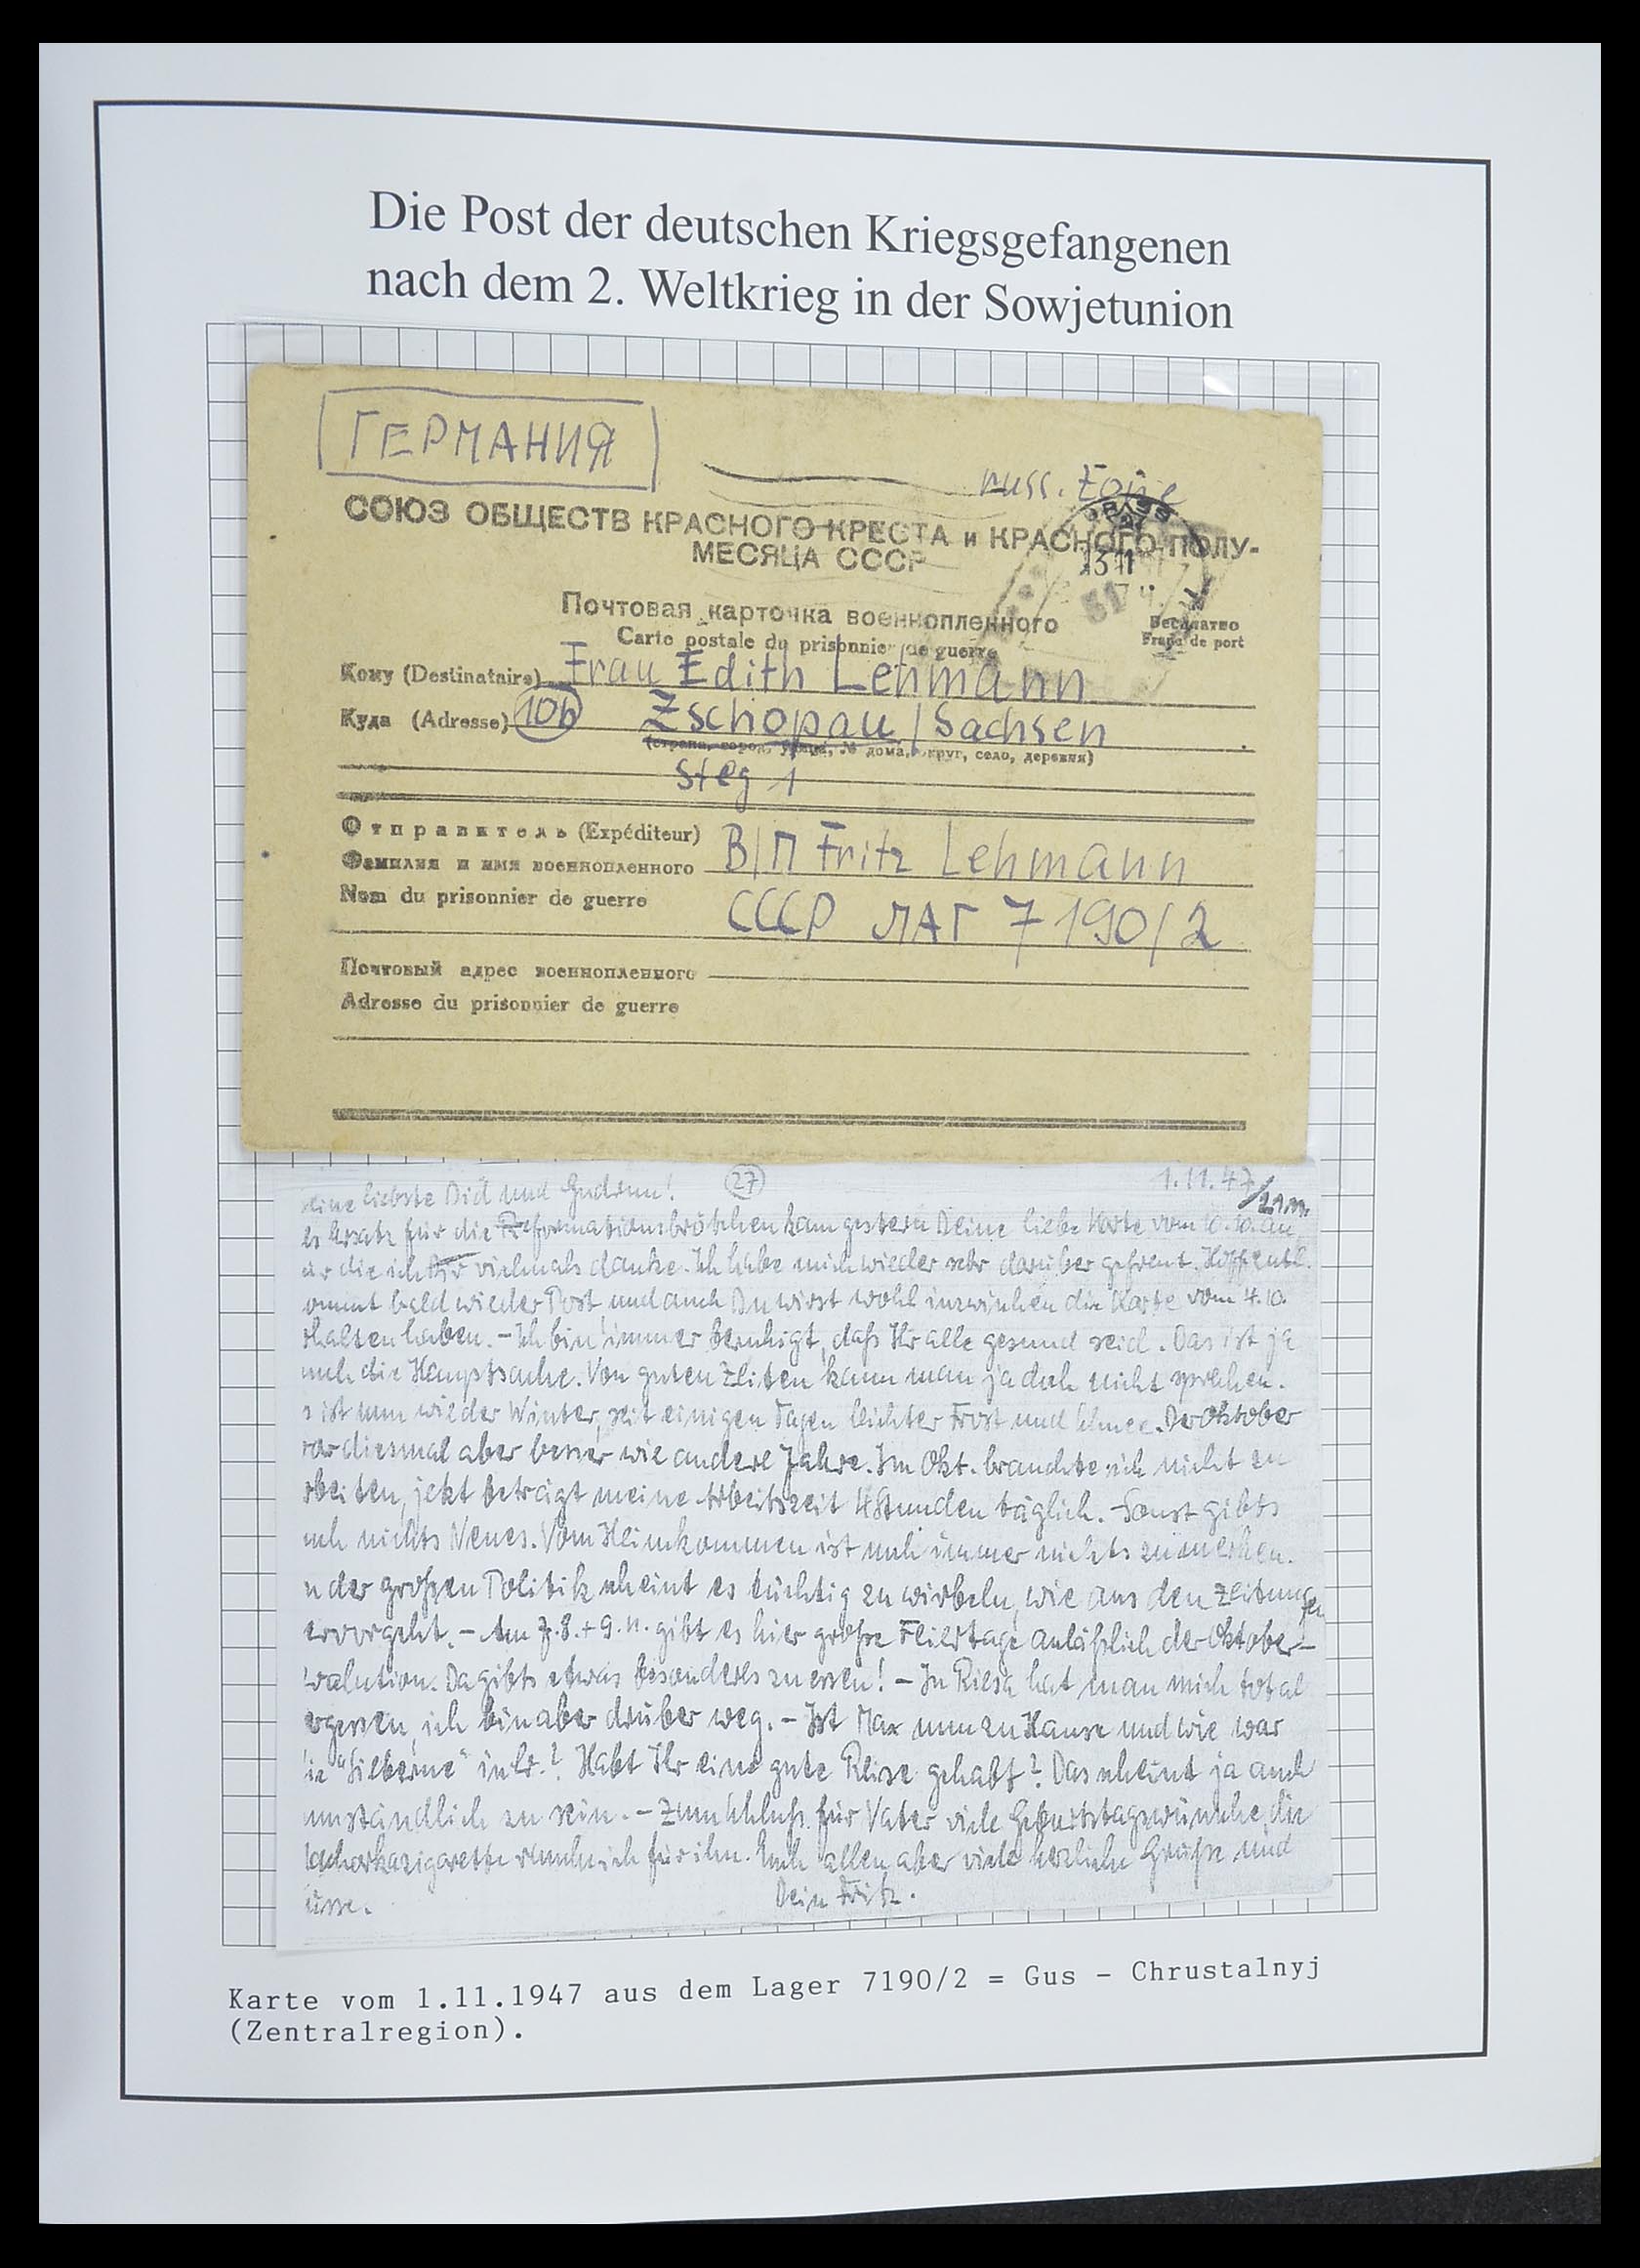 Die Post der deutschen Kriegsgefangenen
nach dem 2. Weltkrieg in der Sowjetunion
ГЕРМАНИЯ
russ. Zone
СОЮЗ ОБЩЕСТВ КРАСНОГО КРЕСТА и КРАСНОГО ПОЛУ-
МЕСЯЦА СССР
Почтовая карточка военнопленного
Carte postale du prisonnier de guerre
Бесплатно
Franc de port
Кому (Destinataire) Frau Edith Lehmann
Куда (Adresse) 10b Zschopau / Sachsen
(страна, город, улица, № дома, округ, село, деревня)
Steg 1
Отправитель (Expéditeur)
Фамилия и имя военнопленного В/П Fritz Lehmann
Nom du prisonnier de guerre
СССР ЛАГ 7190/2
Почтовый адрес военнопленного
Adresse du prisonnier de guerre
27 1.11.47
eine liebste Did und Gudrun!
ls Ersatz für die Reformationsbrötchen kam gestern Deine liebe Karte vom 10.10. an
ür die ich Dir vielmals danke. Ich habe mich wieder sehr darüber gefreut. Hoffentl.
ommt bald wieder Post und auch Du wirst wohl inzwischen die Karte vom 4.10.
rhalten haben. - Ich bin immer beruhigt, daß Ihr alle gesund seid. Das ist ja
uch die Hauptsache. Von guten Zeiten kann man ja doch nicht sprechen.
s ist nun wieder Winter, seit einigen Tagen leichter Frost und Schnee. Der Oktober
war diesmal aber besser wie andere Jahre. Im Okt. brauchte ich nicht zu
rbeiten, jetzt beträgt meine Arbeitszeit 4 Stunden täglich. - Sonst gibts
uch nichts Neues. Vom Heimkommen ist noch immer nichts zu merken.
n der großen Politik scheint es tüchtig zu wirbeln, wie aus den Zeitungen
ervorgeht. - Am 7. 8. + 9. 11. gibt es hier große Feiertage anläßlich der Oktober-
volution. Da gibts etwas besonderes zu essen! - In Riesa hat man mich total
ergessen, ich bin aber drüber weg. - Ist Max nun zu Hause und wie war
ie "Silberne" in ? Habt Ihr eine gute Reise gehabt? Das scheint ja auch
umständlich zu sein. - Zum Schluß für Vater viele Geburtstagswünsche, die
zigarette rauche ich für ihn. Euch allen aber viele herzliche Grüße und
üsse. Dein Fritz.
Karte vom 1.11.1947 aus dem Lager 7190/2 = Gus - Chrustalnyj
(Zentralregion).